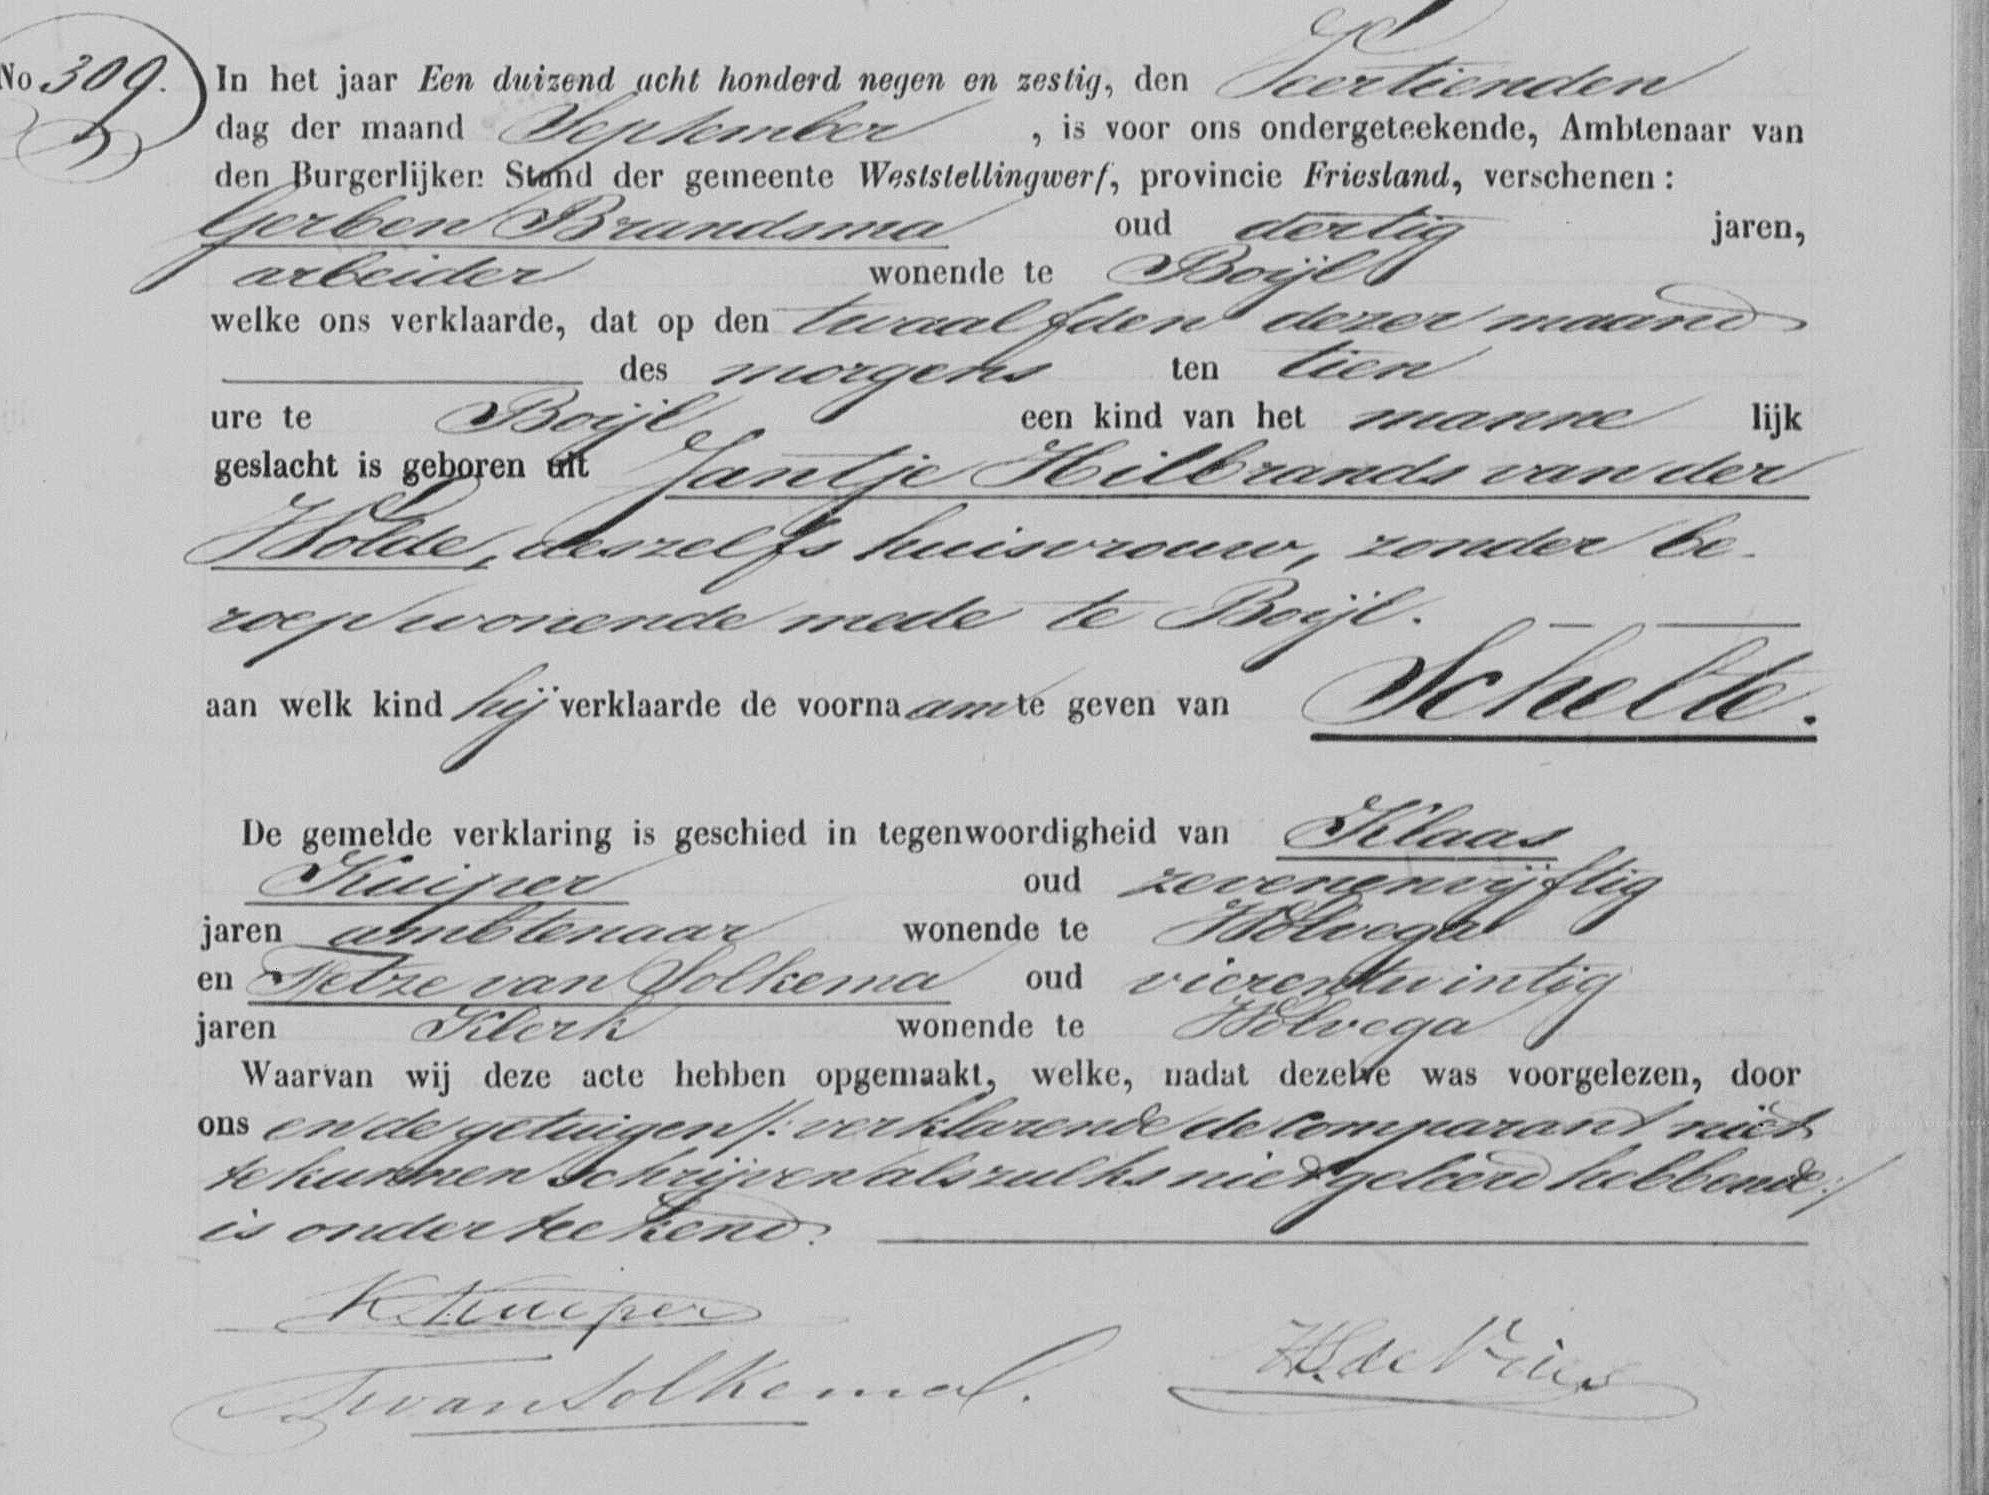 No 309. In het jaar Een duizend acht honderd negen en zestig, den Veertienden
dag der maand September, is voor ons ondergeteekende, Ambtenaar van
den Burgerlijken Stand der gemeente Weststellingwerf, provincie Friesland, verschenen:
Gerben Brandsma oud dertig jaren,
arbeider wonende te Boijl
welke ons verklaarde, dat op den twaalfden dezer maand
des morgens ten tien
ure te Boijl een kind van het manne lijk
geslacht is geboren uit Jantje Hilbrands van der
Wolde, deszelfs huisvrouw, zonder be-
roep wonende mede te Boijl.
aan welk kind hij verklaarde de voornaam te geven van Schelte.
De gemelde verklaring is geschied in tegenwoordigheid van Klaas
Kuiper oud zevenenvijftig
jaren ambtenaar wonende te Wolvega
en Tetze van Solkema oud vierentwintig
jaren Klerk wonende te Wolvega
Waarvan wij deze acte hebben opgemaakt, welke, nadat dezelve was voorgelezen, door
ons en de getuigen /: verklarende de Comparant niet
te kunnen schrijven als zulks niet geleerd hebbende :/
is onderteekend.
K Kuiper
van Solkema de Vries